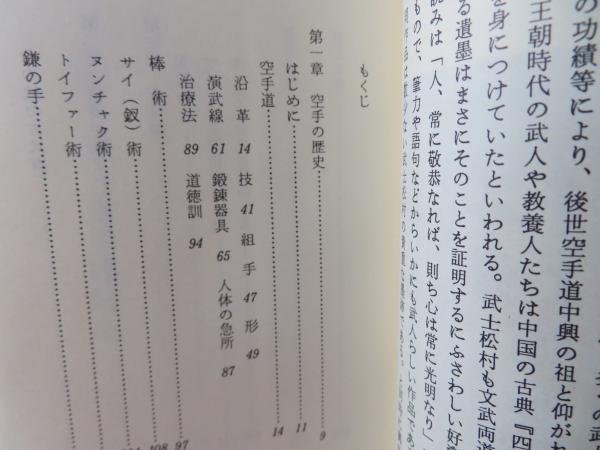 の功績等により、後世空手道中興の祖と仰がれ
王朝時代の武人や教養人たちは中国の古典『四
を身につけていたといわれる。武士松村も文武両道
る遺墨はまさにそのことを証明するにふさわしい好
読みは「人、常に敬恭なれば、則ち心は常に光明なり」
もので、筆力や語句などからいかにも武人らしい作品であ
もくじ
第一章 空手の歴史……9
はじめに……11
空手道……14
沿革 14 技 41 組手 47 形 49
演武線 61 鍛錬器具 65 人体の急所 87
治療法 89 道徳訓 94
棒術……97
サイ(釵)術……108
ヌンチャク術……
トイファー術……
鎌の手……